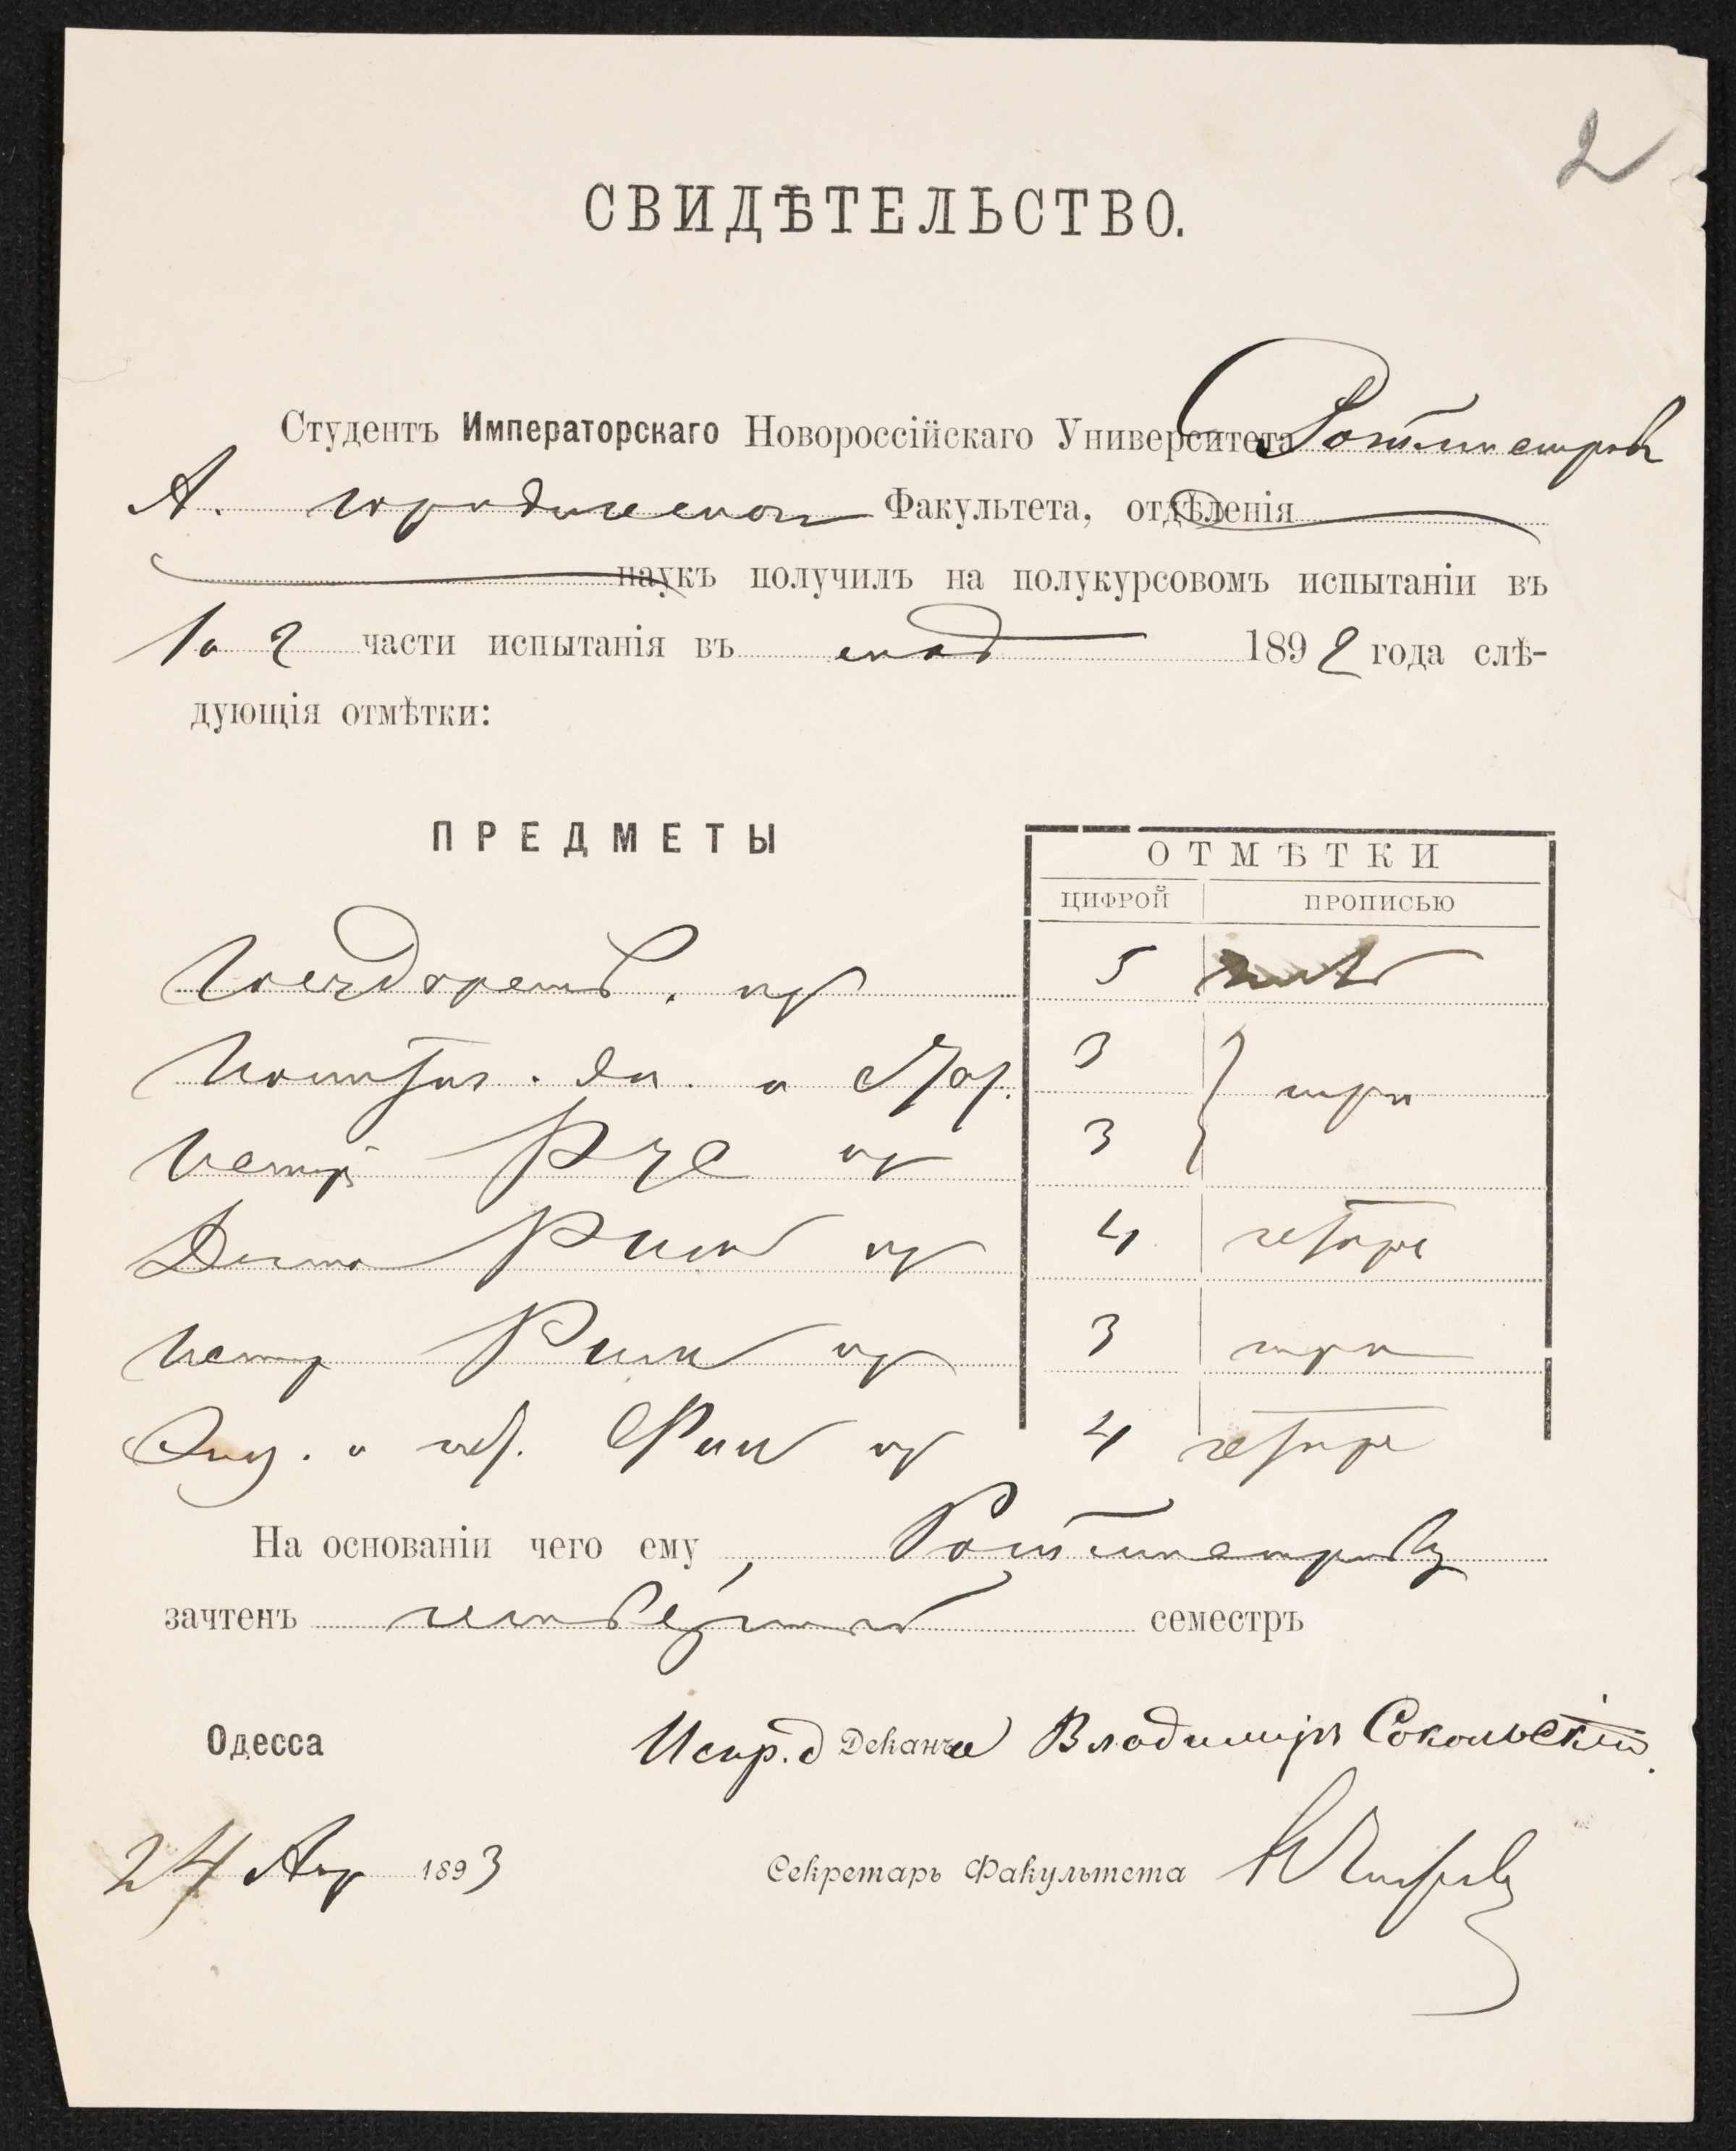 2
СВИДѢТЕЛЬСТВО.
Студентъ Императорскаго Новороссійскаго Университета Ротмистровъ
А. юридическаго Факультета, отдѣленія
наукъ получилъ на полукурсовомъ испытаніи въ
1 и 2 части испытанія въ маѣ 1892 года слѣ-
дующія отмѣтки:
ПРЕДМЕТЫ ОТМѢТКИ
ЦИФРОЙ ПРОПИСЬЮ
Государств. пр 5 пять
3 три
Истор Рус пр 3
Догма Рим пр 4 четыре
Истор Рим пр 3 три
Энц. и Рим пр 4 четыре
На основаніи чего ему, Ротмистрову
зачтенъ четвертый семестръ
Одесса Испр. д Декана Владимиръ Сокольскій.
24 Апр 1893 Секретарь Факультета